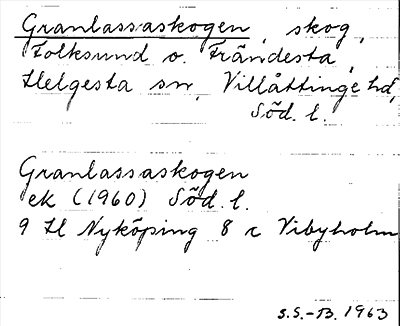 Granlassaskogen, skog,
Folksund o. Frändesta,
Helgesta sn, Villåttinge hd,
Söd. l.
Granlassaskogen
ek (1960) Söd. l.
9 H Nyköping 8 c Vibyholm
S.S.-B. 1963